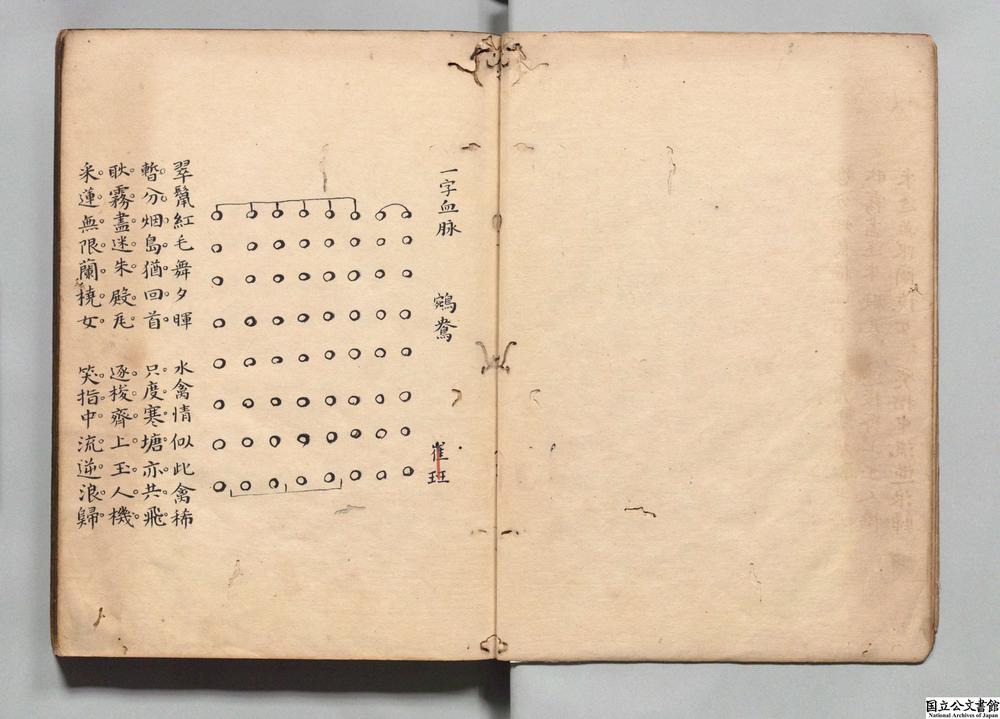 一字血脉
鵷鴦
崔玨
翠鬣紅毛舞夕暉
水禽情似此禽稀
暫分烟島猶回首
只度寒塘亦共飛
耿霧盡迷朱殿瓦
逐梭齊上玉人機
采蓮無限蘭橈女
笑指中流逆浪歸
国立公文書館
National Archives of Japan